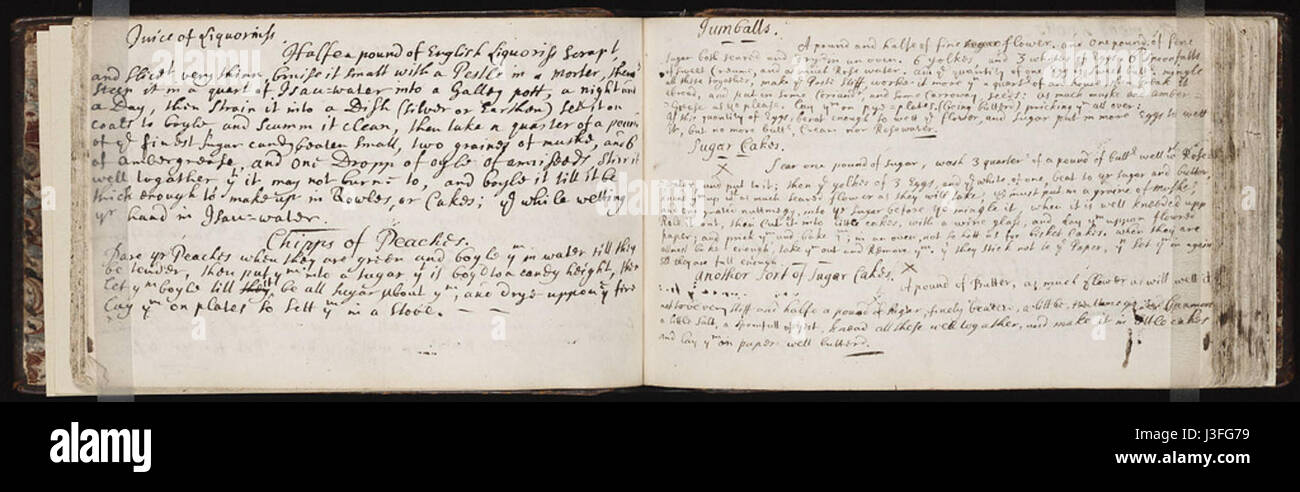 Juice of Liquoriss
Halfe a pound of English Liquoriss Scrapt,
and Sliced very thinn, bruise it small with a Pestle in a morter, then
steep it in a quart of Isau-water into a Galley pott, a night and
a Day, then strain it into a Dish (silver or Earthen) set it on
coals to boyle and scumm it clean, then take a quarter of a pound
of yᵉ finest Sugar candy beaten small, two graines of muske, and 6
of ambergreese, and one Dropp of oyle of anniseeds, stir it
well togather yᵗ it may not burne to, and boyle it till it be
thick enough to make up in Rowles, or Cakes; yᵉ while wetting
yʳ hand in Isau-water.
Chipps of Peaches.
Pare yʳ Peaches when they are green and boyle yᵐ in water till they
be tender, then put yᵐ into a sugar yᵗ is boyld to a candy height, then
Let yᵐ boyle till they be all sugar about yᵐ, and drye uppon yᵉ fire
Lay yᵐ on plates to sett yᵐ in a stove.
Jumballs.
A pound and halfe of fine flower, one pound of fine
sugar both seared and dry in an oven. 6 yolkes, and 3 whites of Eggs, 6 spoonfulls
of sweet Creame, and as much Rose water, and yᵉ quantity of one Egg in butter, mingle
all these together, make yᵉ Paste stiff, worke it
abroad, and put in some Corriand, and som Carroway seeds: as much muske and amber-
Greese as yᵉ please. Lay yᵐ on pye-plates, (being butterd) pricking yᵐ all over:
If this quantity of Eggs, be not enough to wett yᵉ flower, and Sugar put in more Eggs to wett
it, but no more butter, Cream nor Rosewater.
Sugar Cakes.
Sear one pound of Sugar, wash 3 quarters of a pound of butter well wᵗʰ Rose
water and put to it; then yᵉ yolkes of 3 Eggs, and yᵉ white of one, beat to yᵉ sugar and butter,
up wᵗʰ as much seared flower as they will take. yᵉ must put in a graine of Muske,
and grated nuttmegg, into yᵉ sugar before yᵉ mingle it, when it is well kneeded upp
Rowle it out, then Cut it into little cakes, with a wine glass, and lay yᵐ uppon flowred
Paper, and prick yᵐ and bake yᵐ, in an oven, not so hott as for bisket Cakes. when they are
almost bakt enough, take yᵐ out and Remove yᵐ, yᵗ they stick not to yᵉ Paper, yⁿ set yᵐ in again
till they are full enough.
another Sort of Sugar Cakes.
A pound of Butter, as much flower as will well it
stiff and halfe a pound of Sugar, finely beaten, a little Cinnamon
a little salt, a spoonfull of, knead all these well togather, and make it in little cakes
and lay yᵐ on paper well butterd.
alamy
alamy
Image ID: J3FG79
www.alamy.com